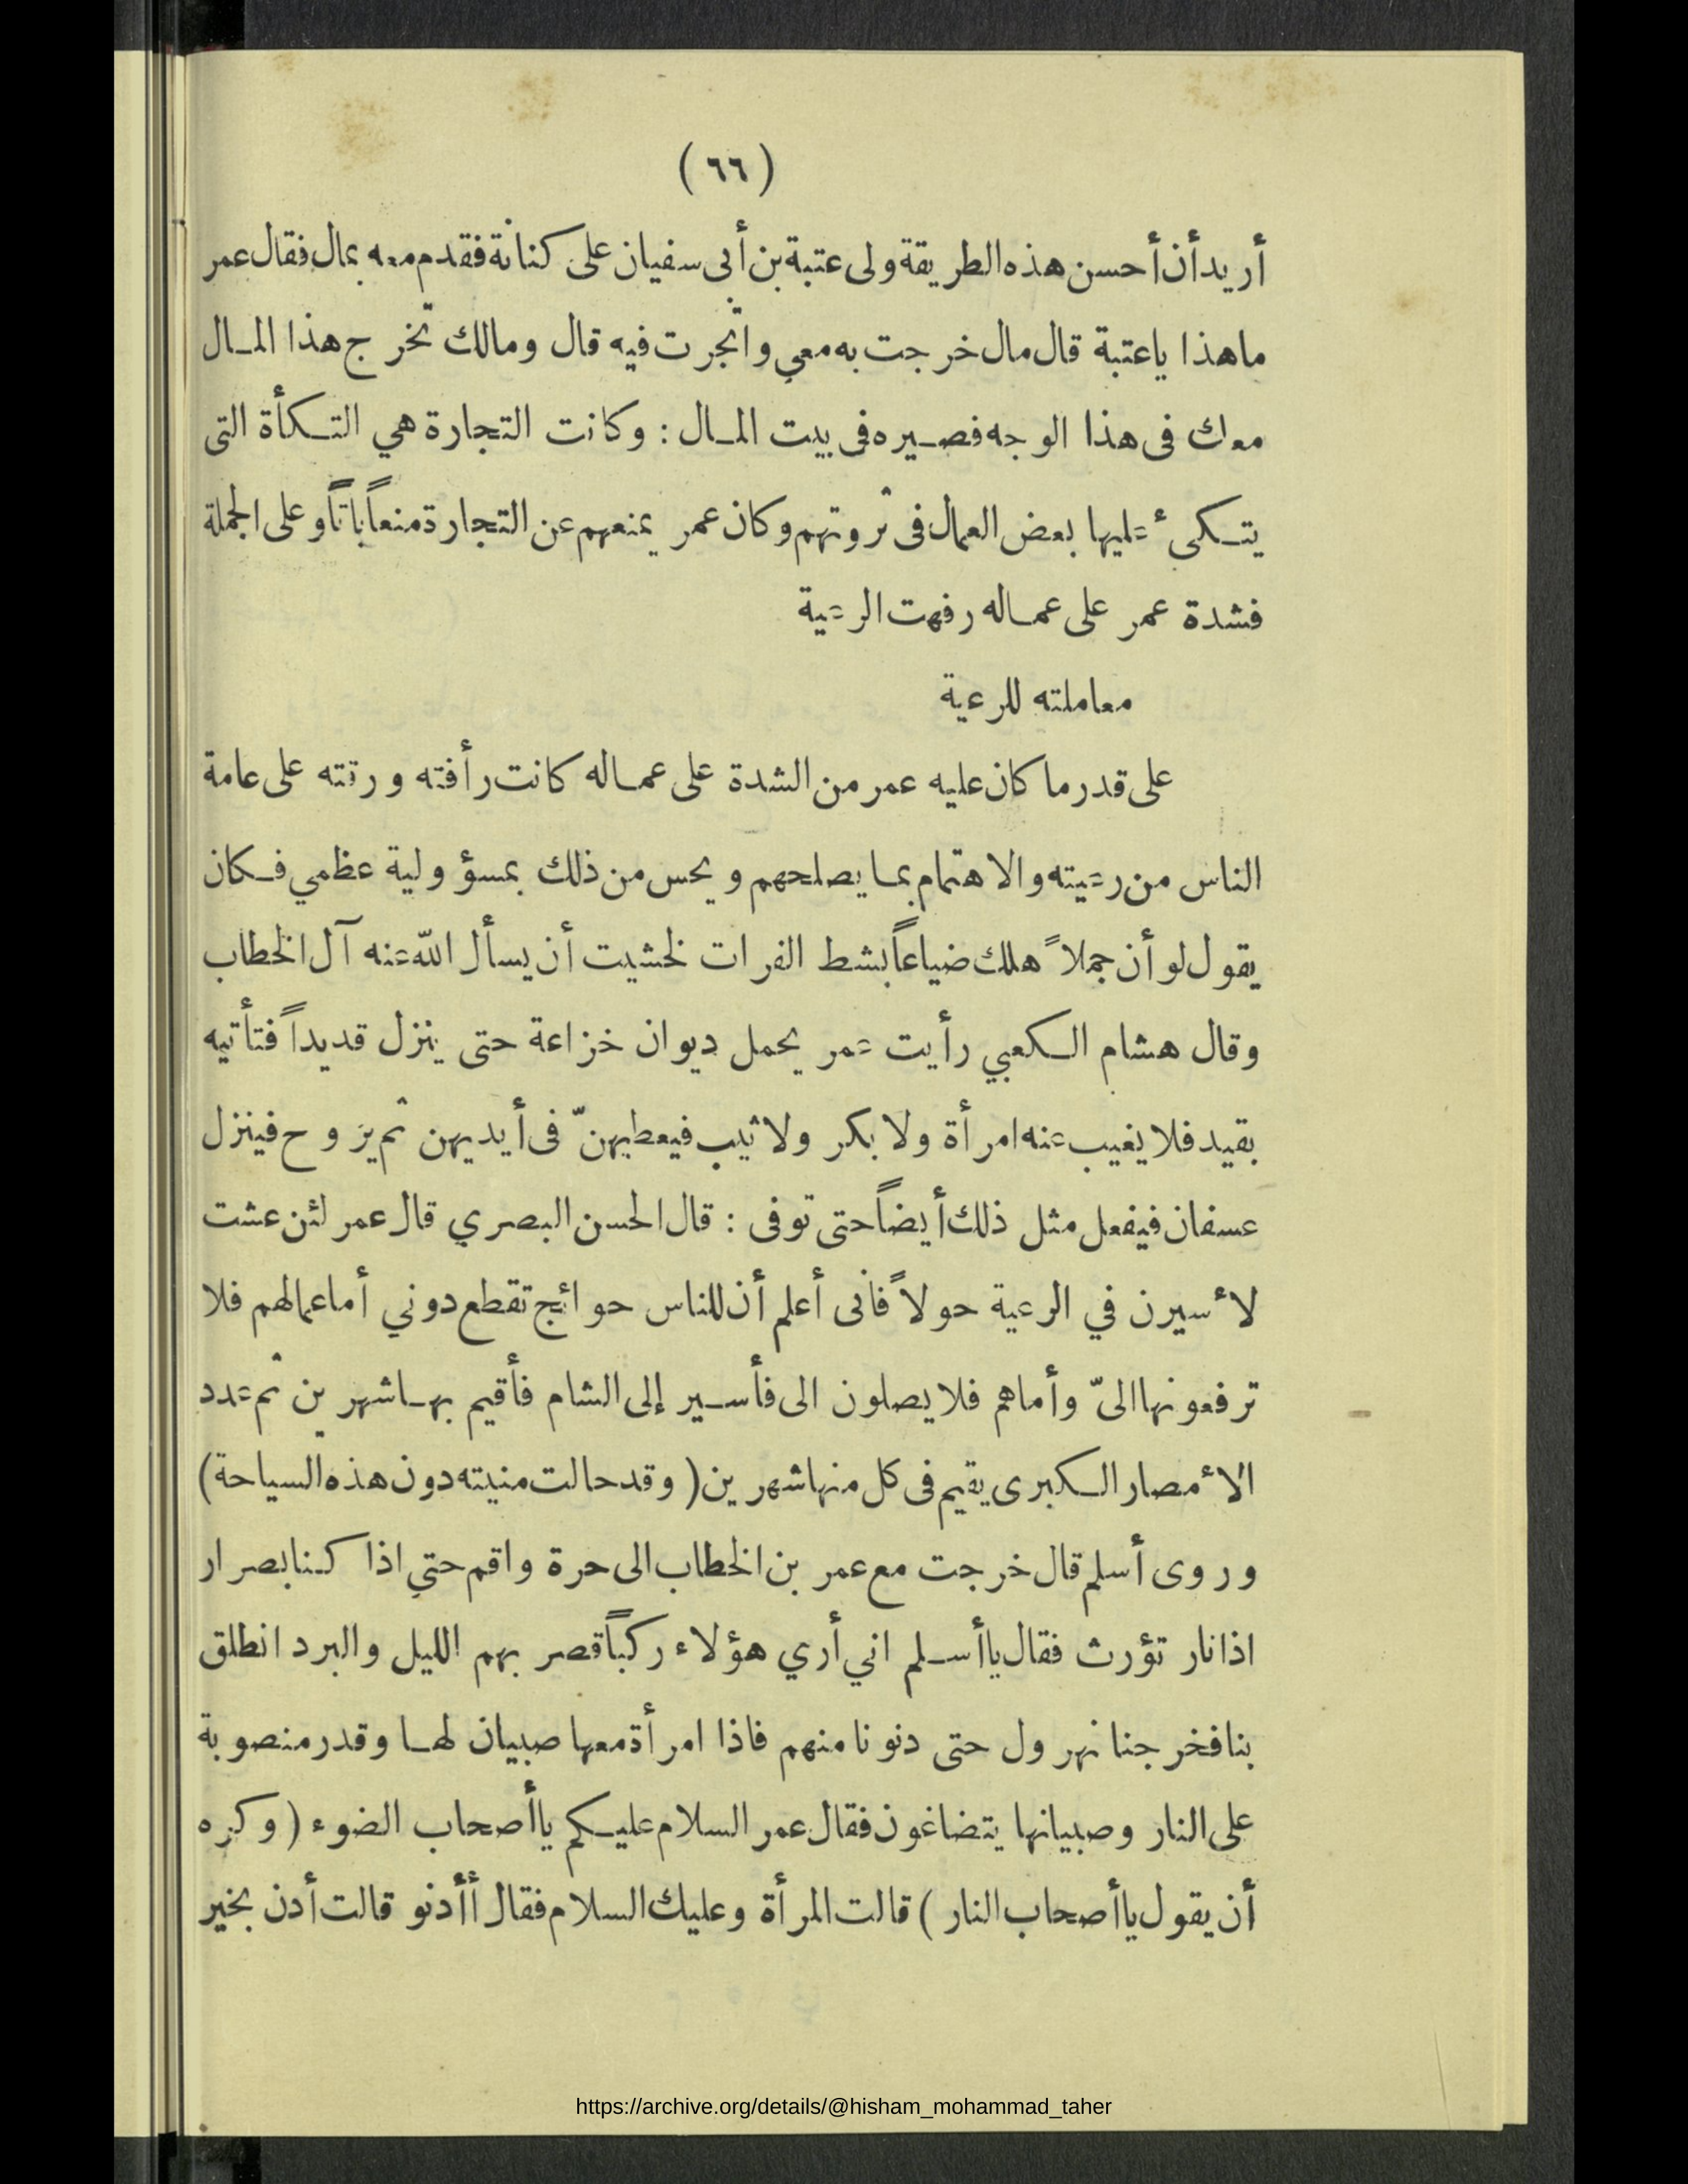 (٦٦)
أريد أن أحسن هذه الطريقة ولى عتبة بن أبى سفيان على كنانة فقدم معه بمال فقال عمر
ما هذا ياعتبة قال مال خرجت به معي واتجرت فيه قال ومالك تخرج هذا المال
معك فى هذا الوجه فصيره فى بيت المال : وكانت التجارة هي التكأة التى
يتكئ عليها بعض العمال فى ثروتهم وكان عمر يمنعهم عن التجارة منعاً باتاً وعلى الجملة
فشدة عمر على عماله رفهت الرعية
معاملته للرعية
على قدر ما كان عليه عمر من الشدة على عماله كانت رأفته ورقته على عامة
الناس من رعيته والاهتمام بما يصلحهم ويحس من ذلك بمسؤولية عظمي فكان
يقول لو أن جملاً هلك ضياعاً بشط الفرات لخشيت أن يسأل الله عنه آل الخطاب
وقال هشام الكعبي رأيت عمر يحمل ديوان خزاعة حتى ينزل قديداً فتأتيه
بقيد فلا يغيب عنه امرأة ولا بكر ولا ثيب فيعطيهنّ فى أيديهن ثم يروح فينزل
عسفان فيفعل مثل ذلك أيضاً حتى توفى : قال الحسن البصري قال عمر لئن عشت
لأسيرن في الرعية حولاً فانى أعلم أن للناس حوائج تقطع دوني أما عمالهم فلا
ترفعونها الىّ وأماهم فلا يصلون الى فأسير إلى الشام فأقيم بها شهرين ثم عدد
الأمصار الكبرى يقيم فى كل منها شهرين ( وقد حالت منيته دون هذه السياحة )
وروى أسلم قال خرجت مع عمر بن الخطاب الى حرة واقم حتي اذا كنا بصرار
اذا نار تؤرث فقال يا أسلم اني أري هؤلاء ركباً قصر بهم الليل والبرد انطلق
بنا فخرجنا نهرول حتى دنونا منهم فاذا امرأة معها صبيان لها وقدر منصوبة
على النار وصبيانها يتضاغون فقال عمر السلام عليكم يا أصحاب الضوء ( وكره
أن يقول يا أصحاب النار ) قالت المرأة وعليك السلام فقال أأدنو قالت أدن بخير
https://archive.org/details/@hisham_mohammad_taher